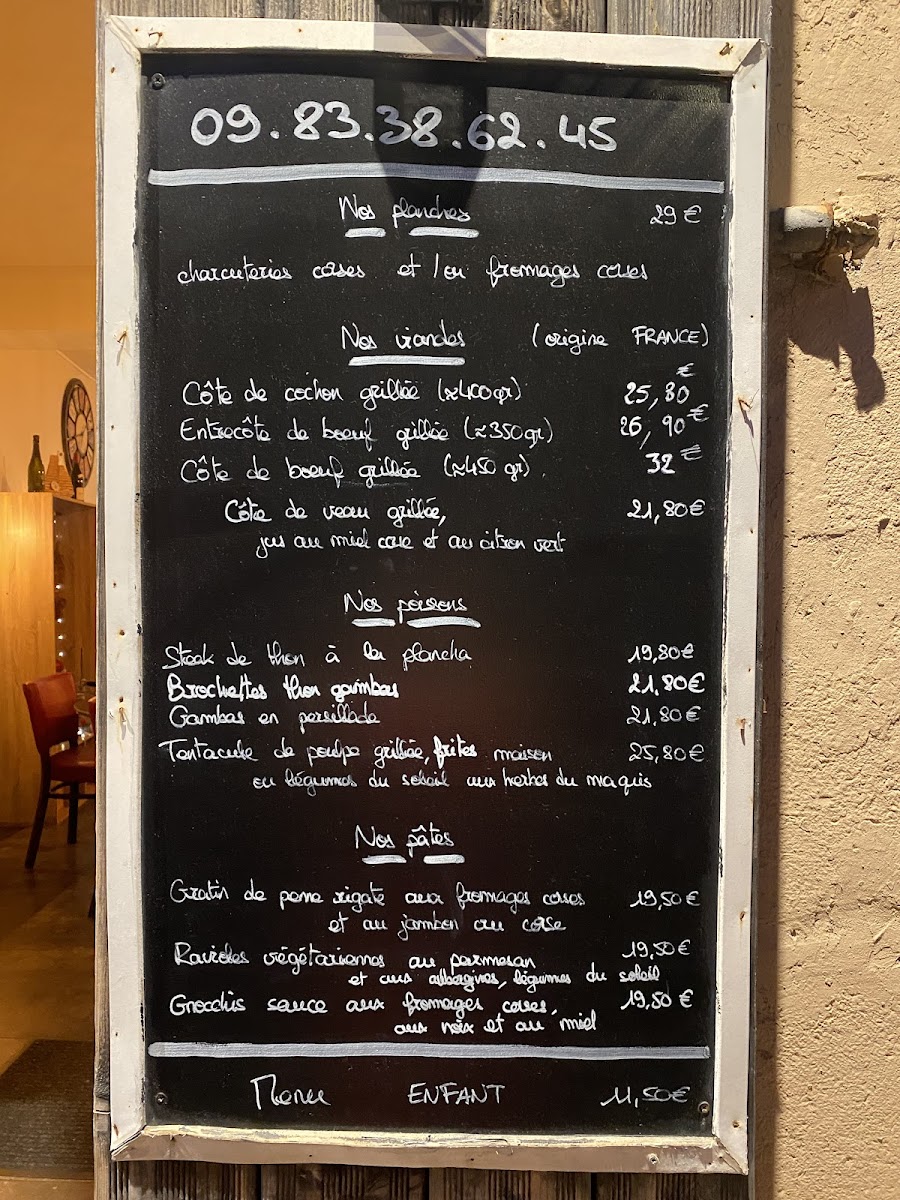 09.83.38.62.45
Nos planches 29 €
charcuteries corses et/ou fromages corses
Nos viandes (origine FRANCE)
Côte de cochon grillée (≈400gr) 25,80 €
Entrecôte de boeuf grillée (≈350gr) 26,90 €
Côte de boeuf grillée (≈450 gr). 32 €
Côte de veau grillée, 21,80€
jus au miel corse et au citron vert
Nos poissons
Steak de thon à la plancha 19,80€
Brochettes thon gambas 21,80€
Gambas en persillade 21,80€
Tentacule de poulpe grillée, frites maison 25,80€
ou légumes du soleil aux herbes du maquis
Nos pâtes
Gratin de penne rigate aux fromages corses 19,50€
et au jambon cru corse
Ravioles végétariennes au parmesan 19,50€
et aux aubergines, légumes du soleil
Gnocchis sauce aux fromages corses, 19,50 €
aux noix et au miel
Menu ENFANT 11,50€